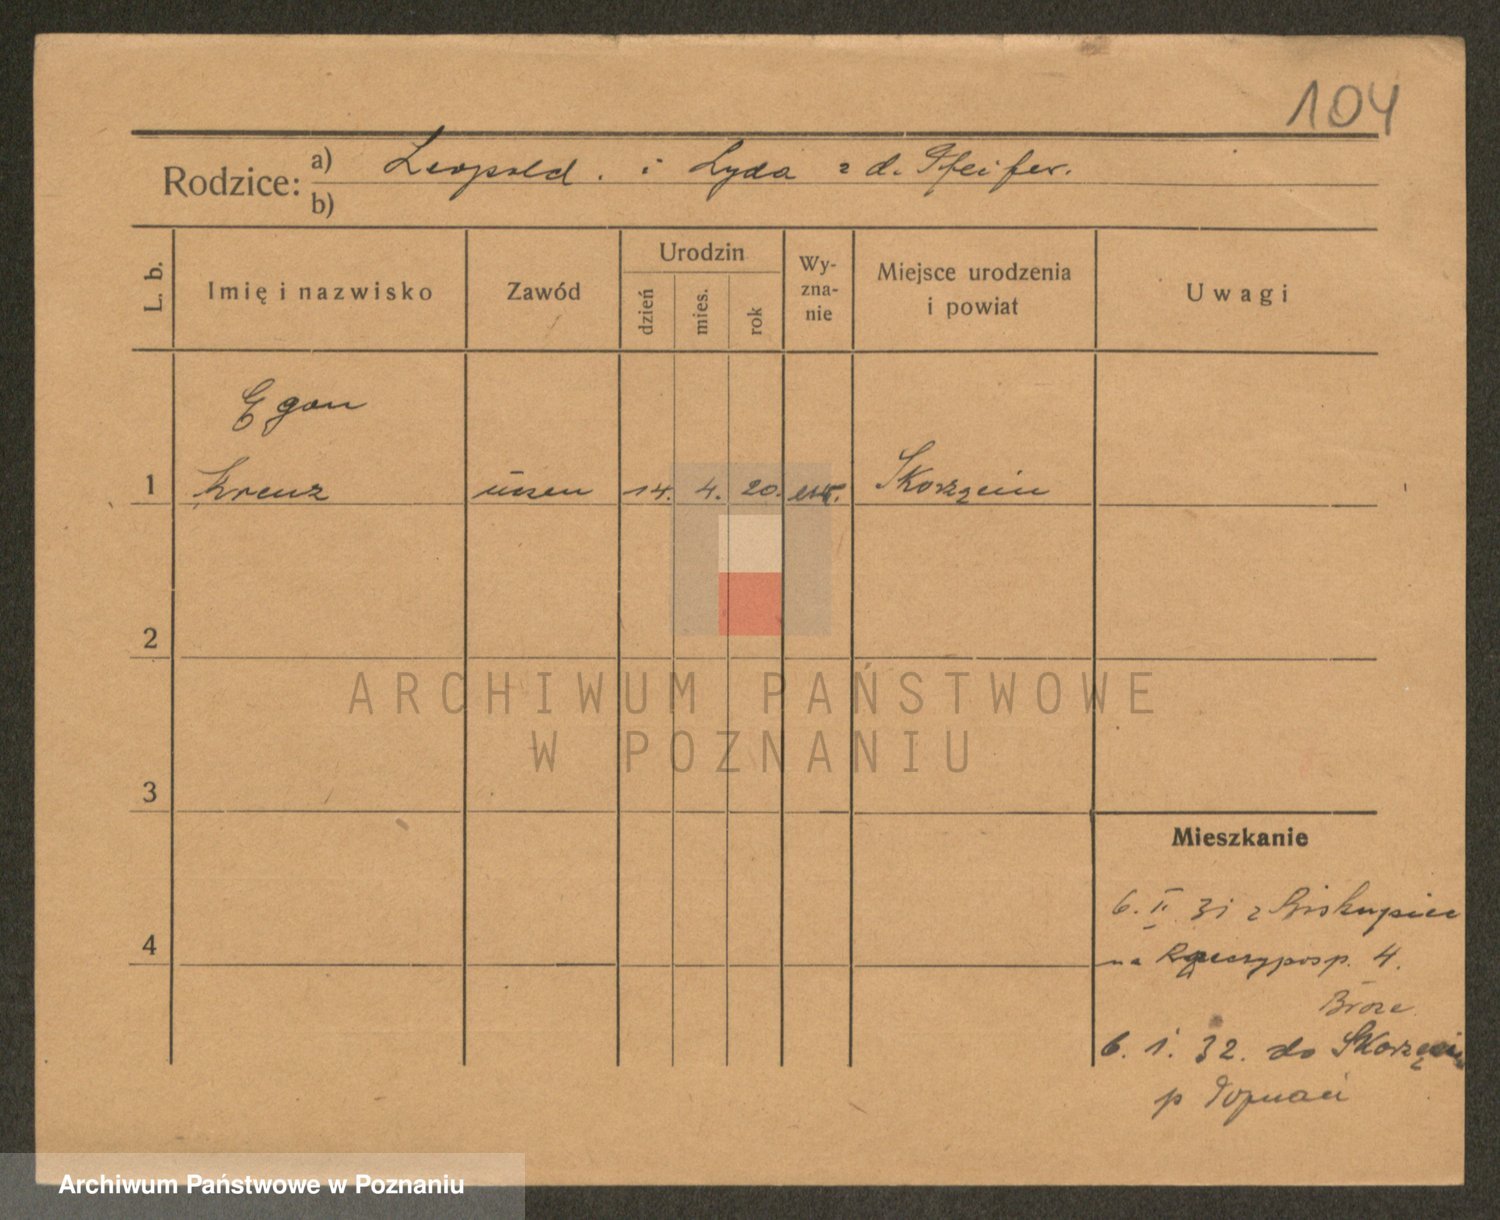 104
Rodzice: a) Leopold. i Lyda z d. Pfeifer.
b)
L. b.
Imię i nazwisko
Zawód
Urodzin
dzień
mies.
rok
Wy-
zna-
nie
Miejsce urodzenia
i powiat
Uwagi
Egon
1 Kreuz uczen 14. 4. 20. ew. Skorzęcin
2
3
4
ARCHIWUM PAŃSTWOWE
W POZNANIU
Mieszkanie
6. II 31 z Biskupiec
na Rzeczyposp. 4.
6. 1. 32. do Skorzęcin
p Poznań
Archiwum Państwowe w Poznaniu